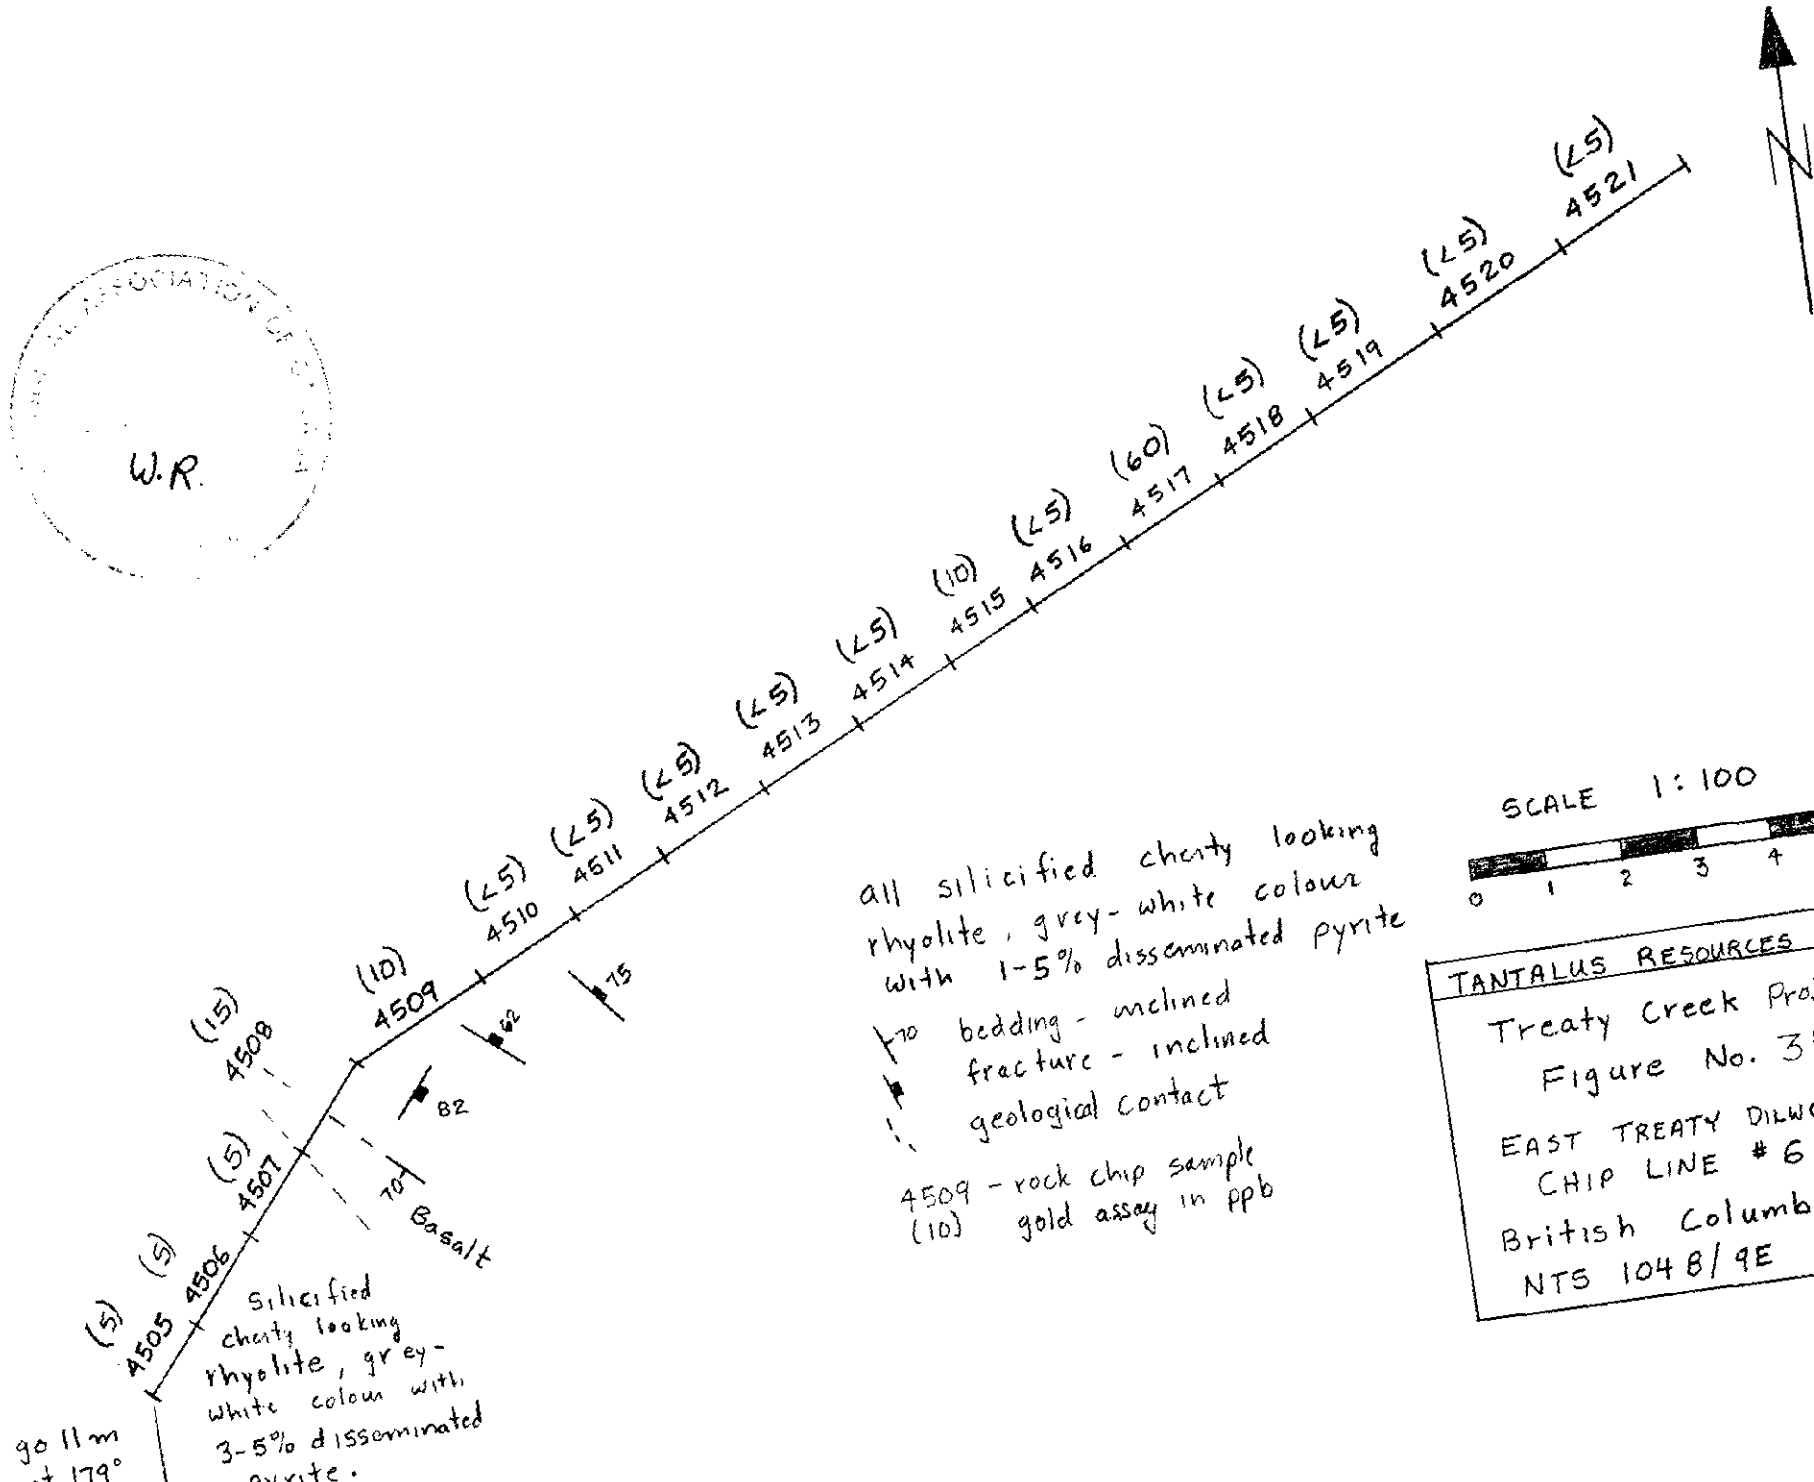 N
(<5)
4521
(<5)
4520
(<5)
4519
(<5)
4518
(60)
4517
(<5)
4516
(10)
4515
(<5)
4514
(<5)
4513
(<5)
4512
(<5)
4511
(<5)
4510
(10)
4509
(15)
4508
(5)
4507
(5)
4506
(5)
4505
ASSOCIATION OF
W.R.
75
62
82
70
Basalt
Silicified
cherty looking
rhyolite, grey-
white colour with
3-5% disseminated
pyrite.
go 11m
at 179°
all silicified cherty looking
rhyolite, grey-white colour
with 1-5% disseminated pyrite
70 bedding - inclined
fracture - inclined
geological contact
4509 - rock chip sample
(10) gold assay in ppb
SCALE 1:100
0 1 2 3 4
TANTALUS RESOURCES
Treaty Creek
Figure No. 3
EAST TREATY
CHIP LINE #6
British
NTS 104B/9E